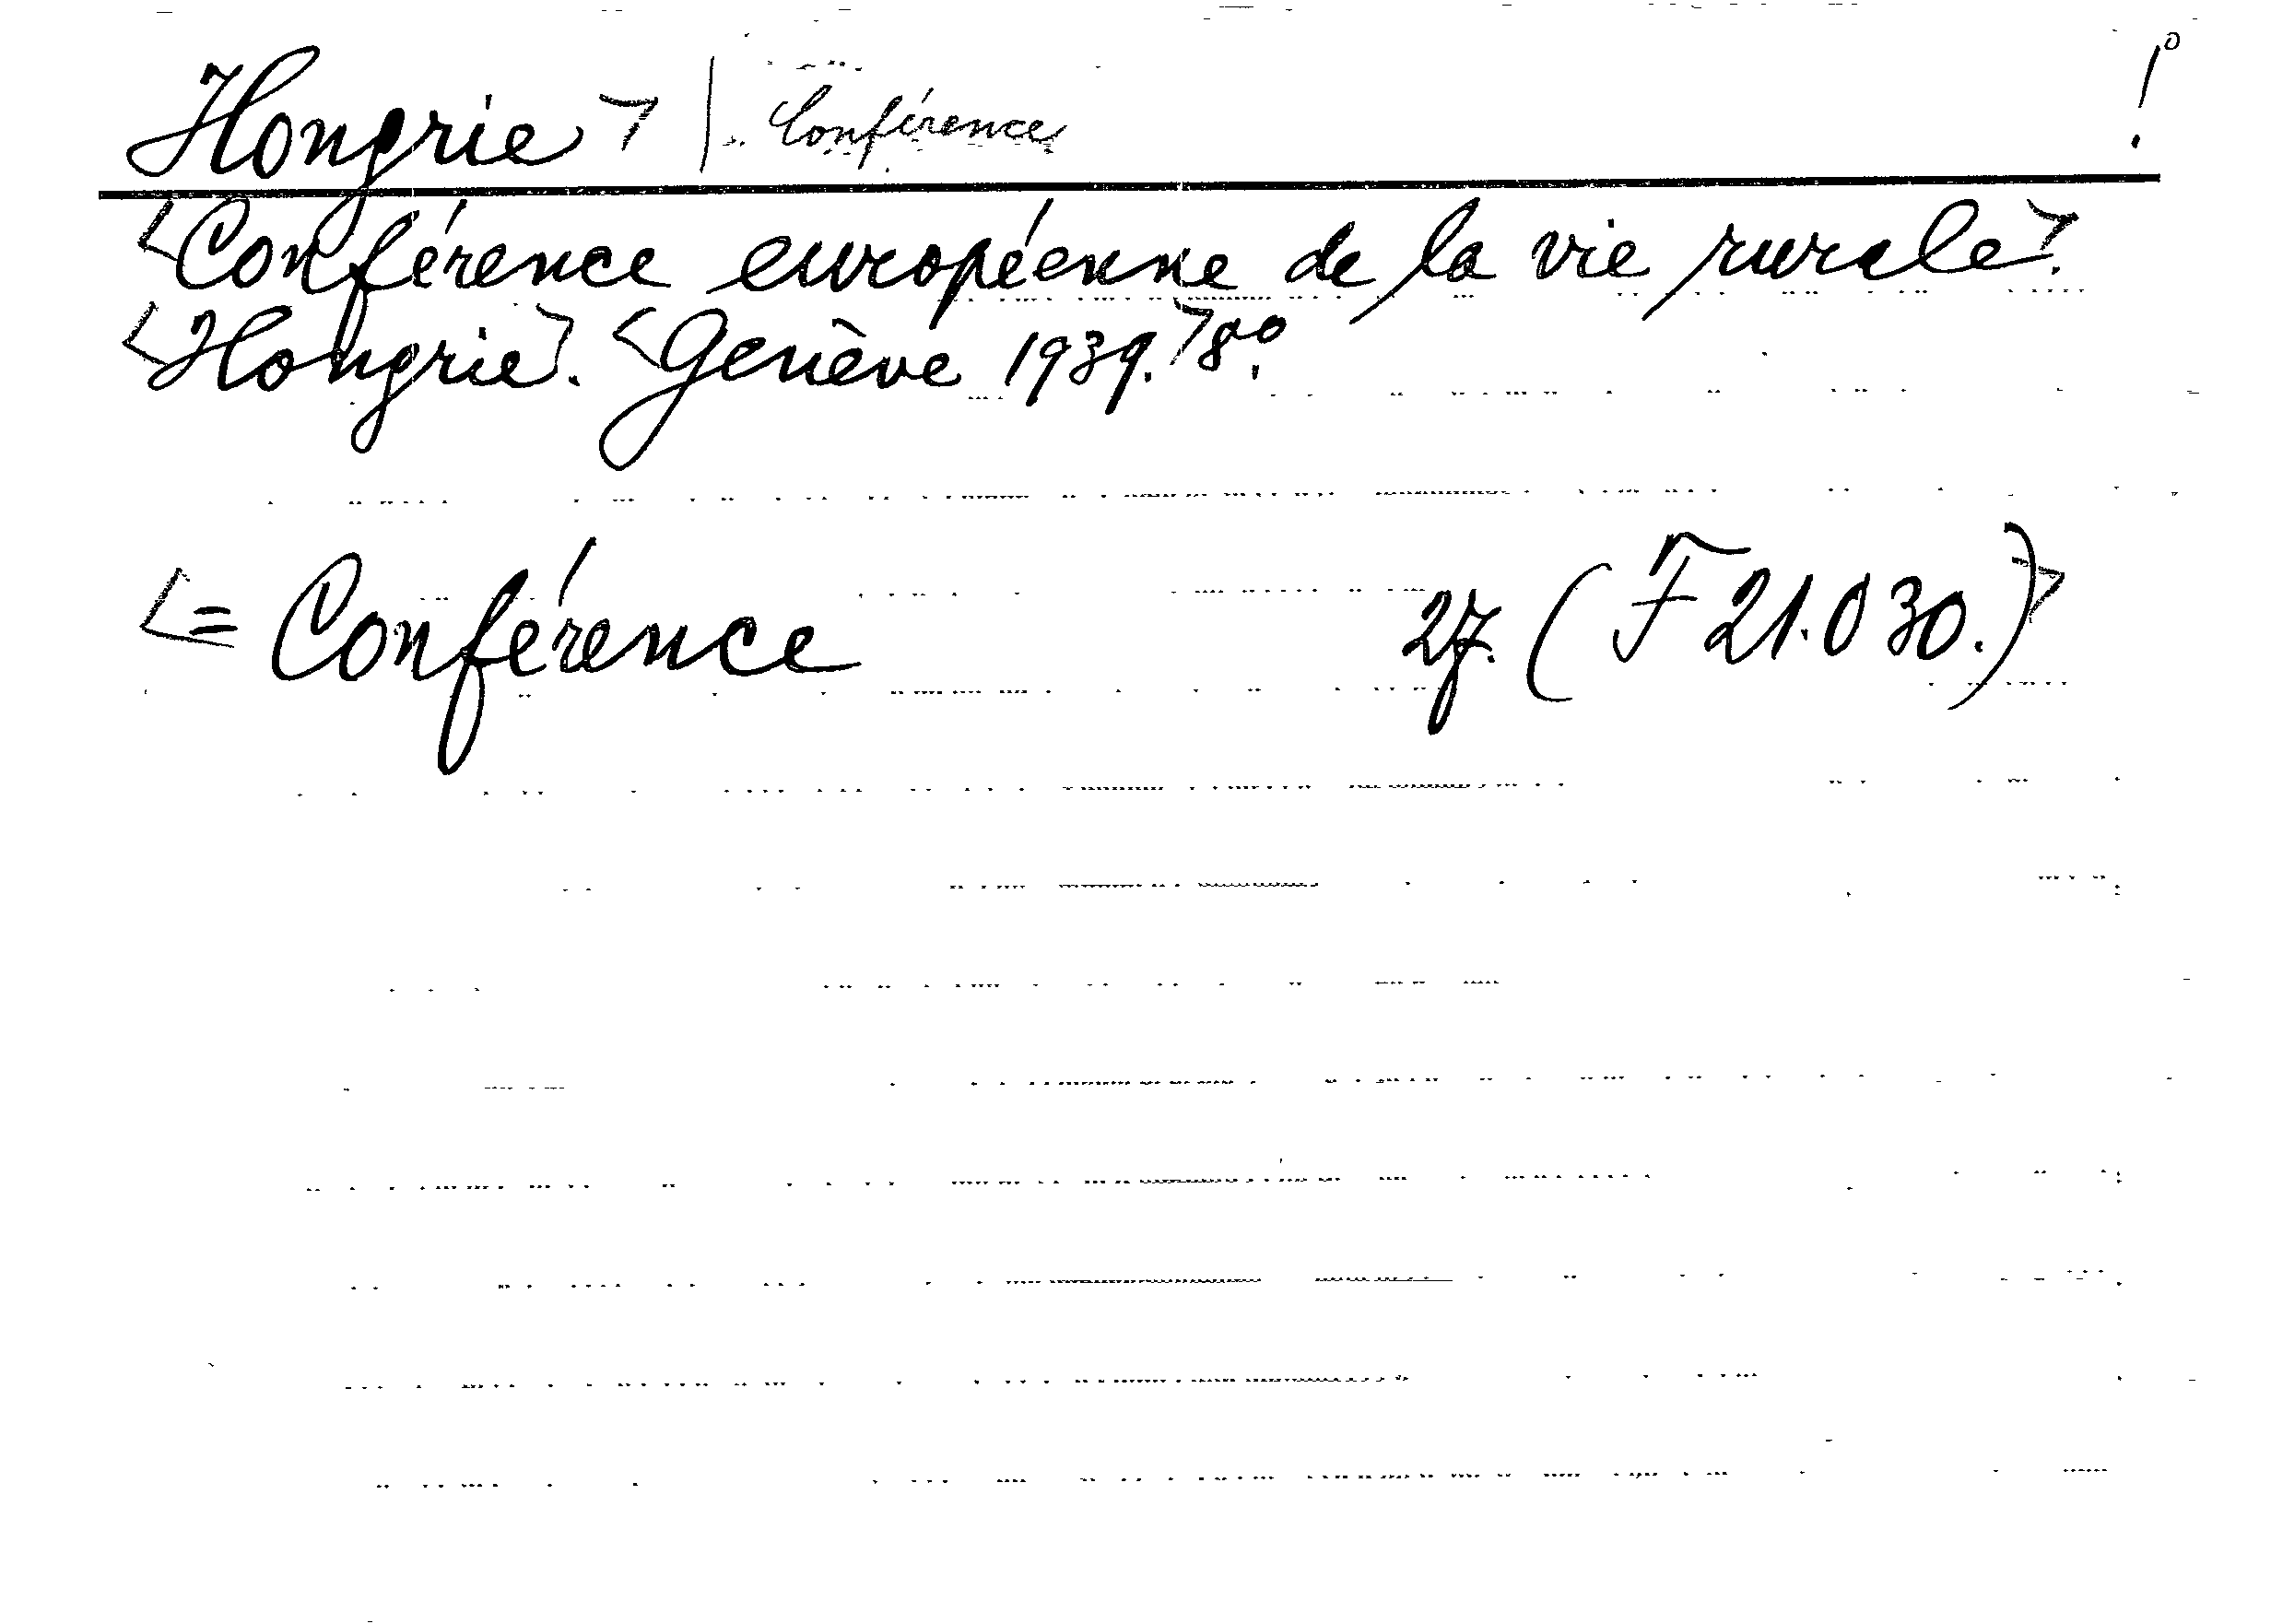 Hongrie> | Conférence !
<Conférence européenne de la vie rurale>.
<Hongrie>. <Genève 1939.> 8°.
<= Conférence 27. (F 21.030.)>